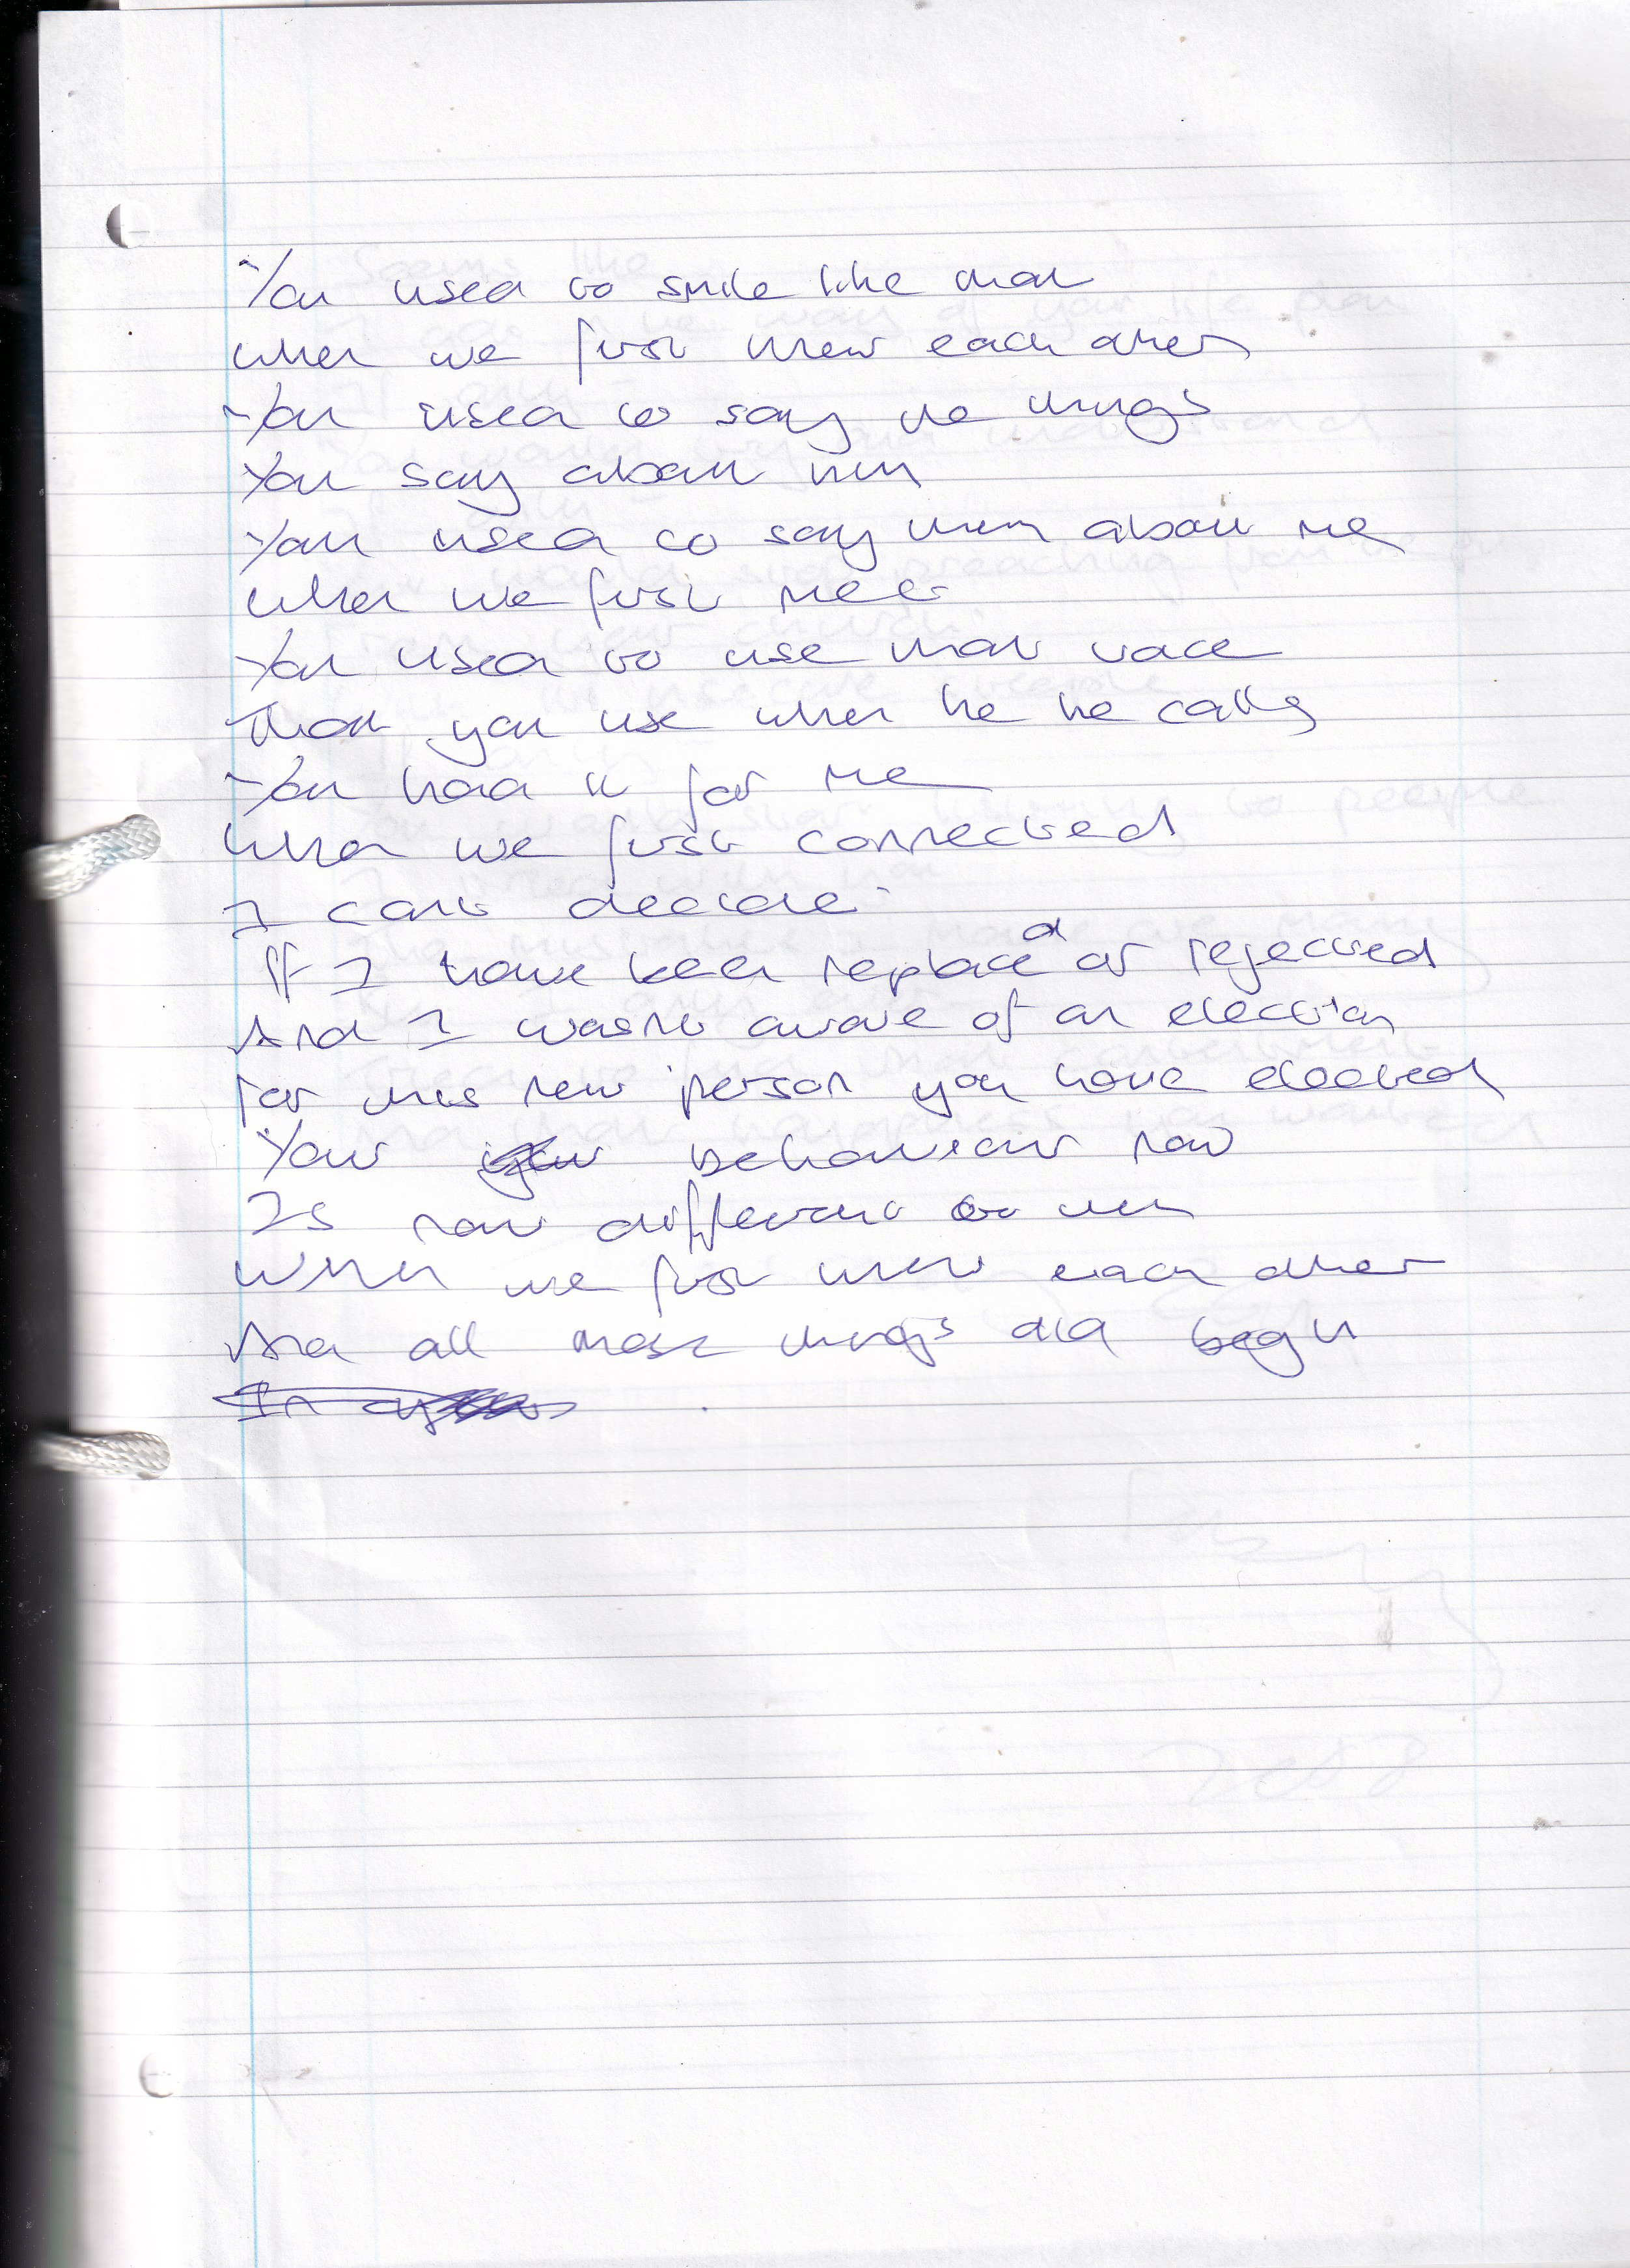 You used to smile like that
when we first knew each other
You used to say the things
You say about him
You used to say them about me
when we first meet
You used to use that voice
That you use when he he calls
You had it for me
when we first connected
I cant decide
If I have been replaced or rejected
And I wasnt aware of an election
For this new person you have elected
Your behaviour now
Is now different to
When we first knew each other
And all these things did begin